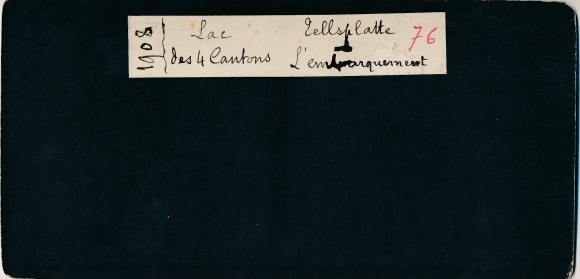 1908
Lac
des 4 Cantons
Tellsplatte
L'embarquement
76